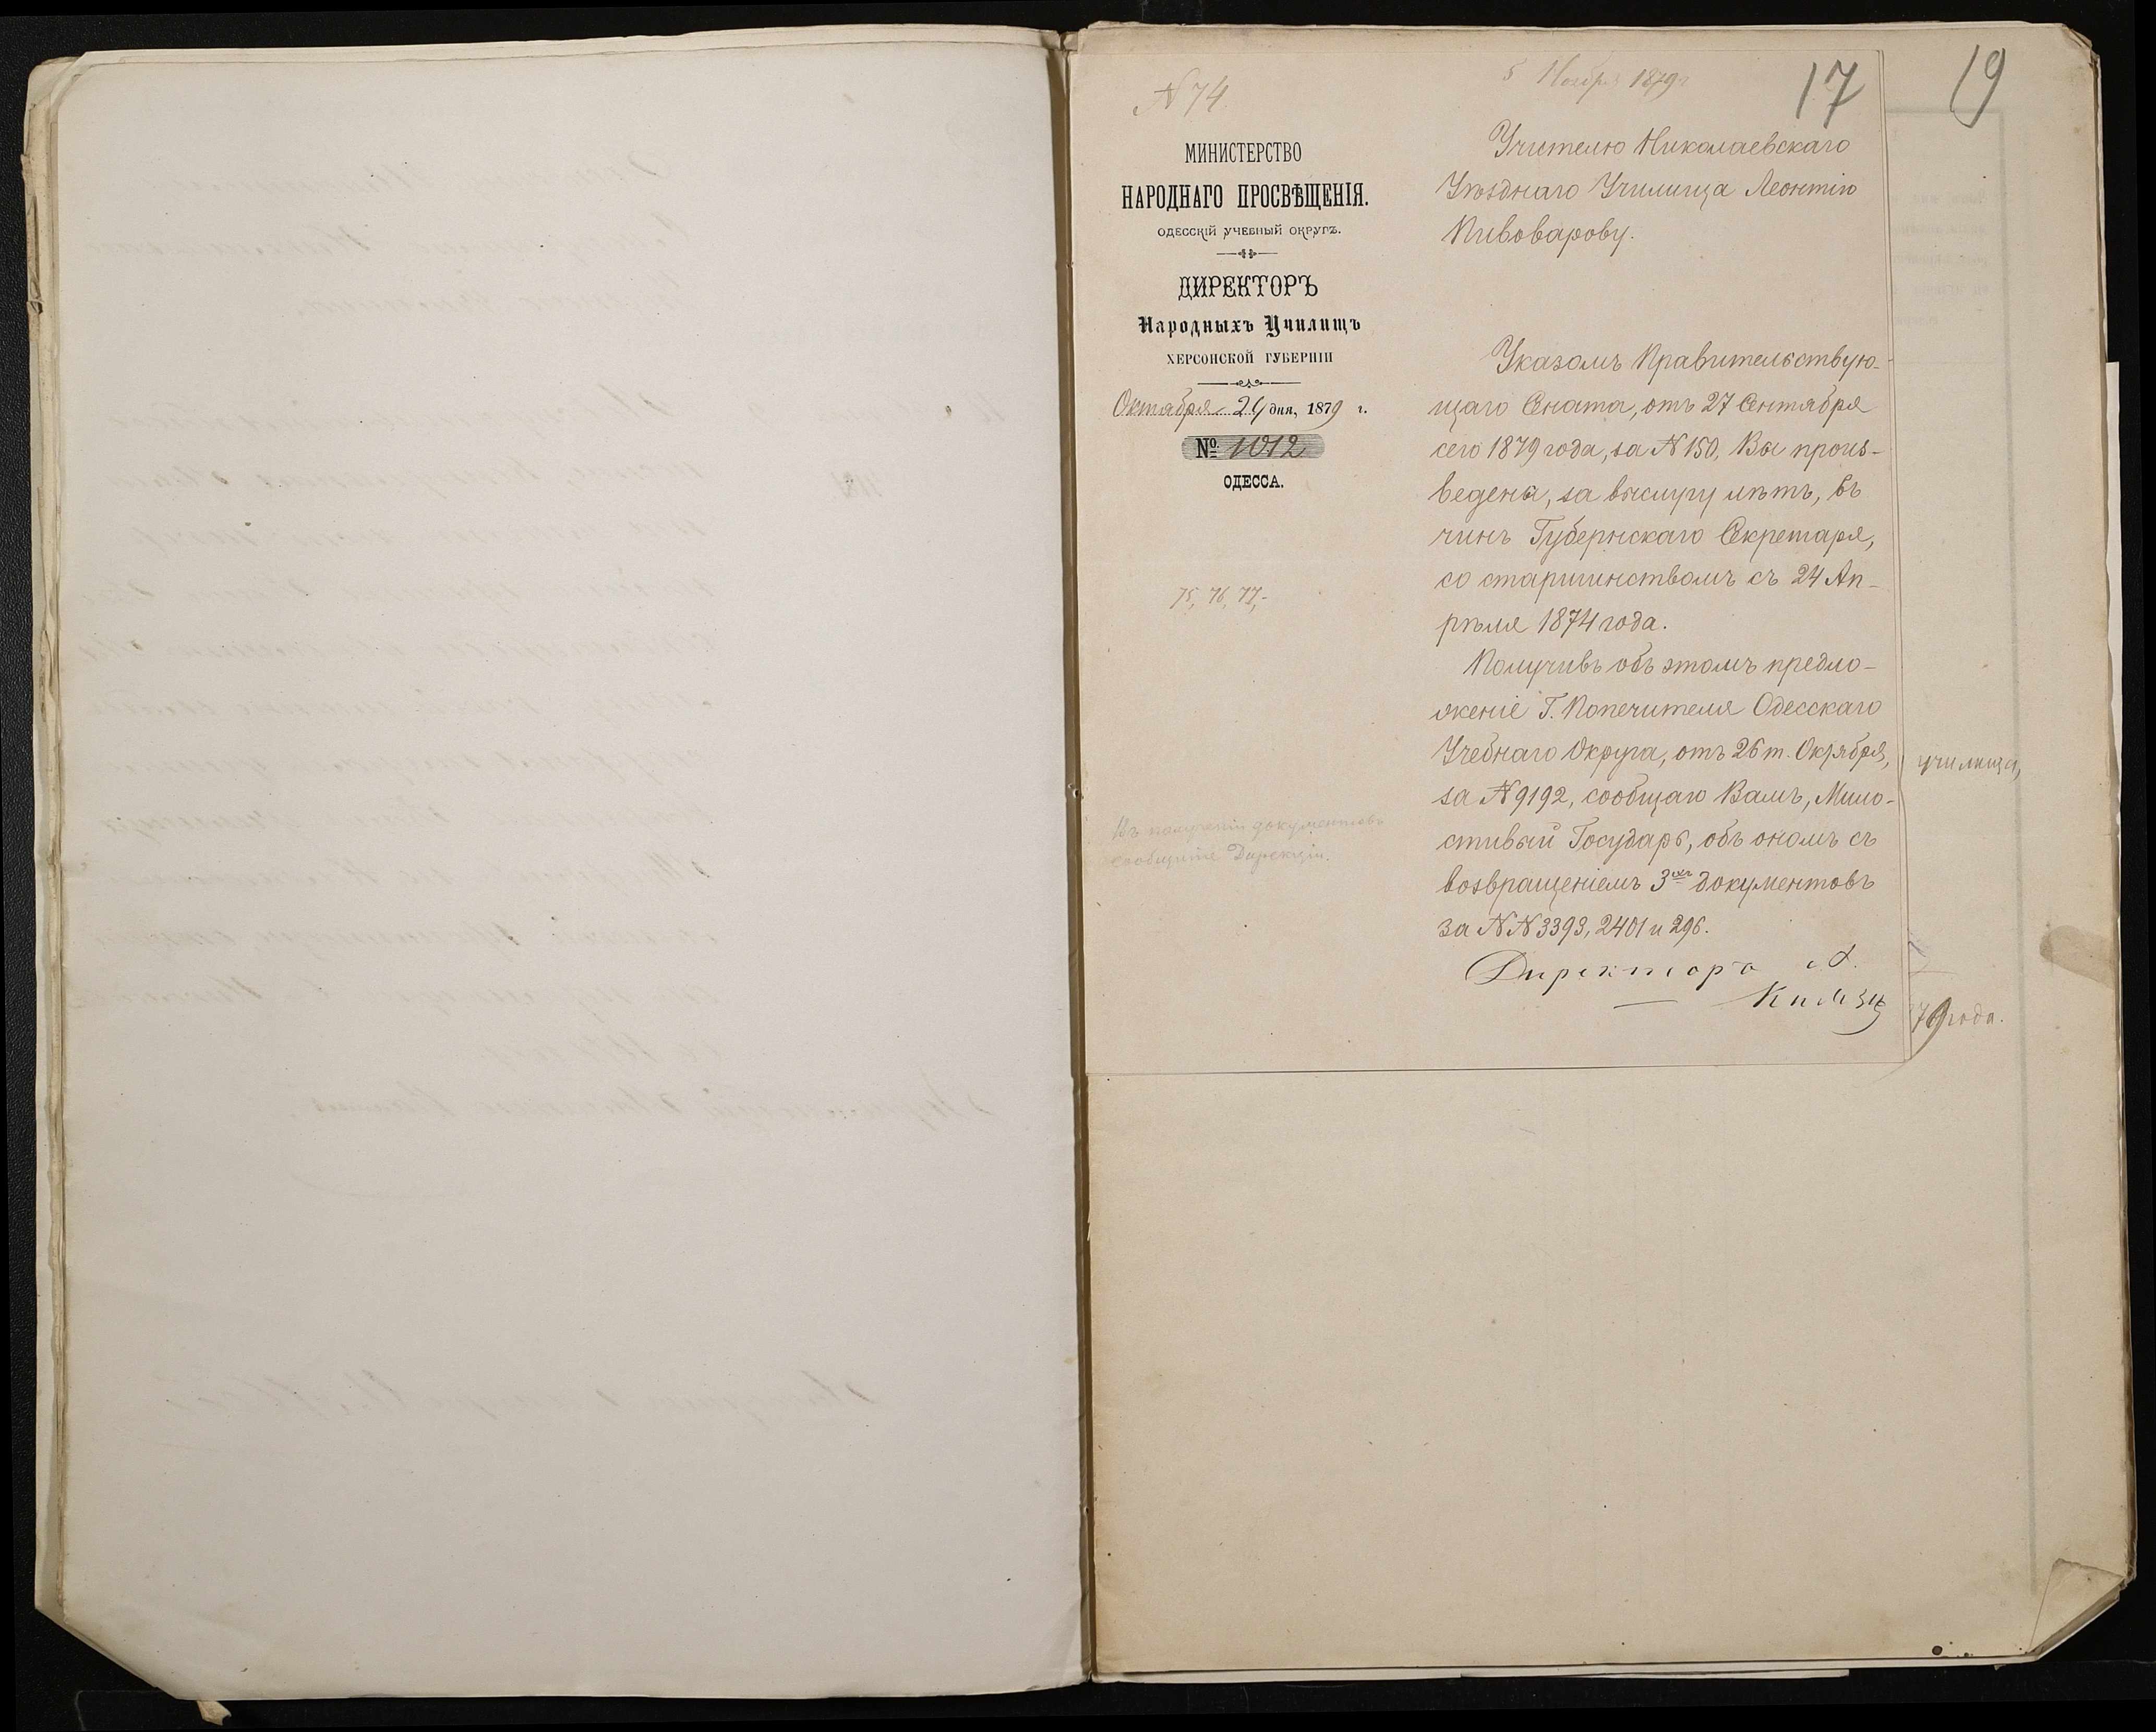 N 74
5 Ноябр. 1879 г
17
19
МИНИСТЕРСТВО
НАРОДНАГО ПРОСВѢЩЕНІЯ.
ОДЕССКІЙ УЧЕБНЫЙ ОКРУГЪ.
ДИРЕКТОРЪ
Народныхъ Училищъ
ХЕРСОНСКОЙ ГУБЕРНІИ
Октября 29 дня, 1879 г.
№ 1012
ОДЕССА.
75, 76, 77,-
По полученіи документовъ
сообщить Дирекціи.
Учителю Николаевскаго
Уѣзднаго Училища Леонтію
Пивоварову.
Указомъ Правительствую-
щаго Сената, отъ 27 Сентября
сего 1879 года, за N 150, Вы произ-
ведены, за выслугу лѣтъ, въ
чинъ Губернскаго Секретаря,
со старшинствомъ съ 24 Ап-
рѣля 1874 года.
Получивъ объ этомъ предло-
женіе Г. Попечителя Одесскаго
Учебнаго Округа, отъ 26 т. Октября,
за N 9192, сообщаю Вамъ, Мило-
стивый Государь, объ ономъ съ
возвращеніемъ 3хъ документовъ
за N N 3393, 2401 и 296.
Директоръ А.
училища,
79 года.